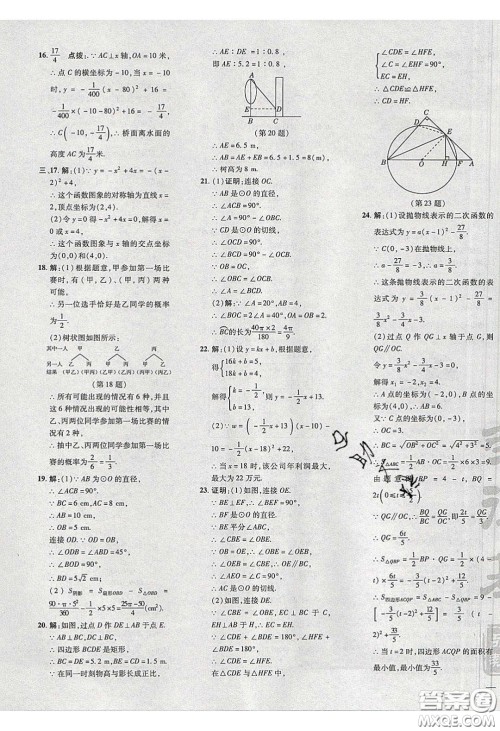 16. 17/4 点拨:∵AC⊥x轴,OA=10米,
∴点C的横坐标为-10,当x=-10
时,y=-1/400(x-80)²+16=
-1/400×(-10-80)²+16=-17/4,
∴C(-10,-17/4),∴桥面离水面的
高度AC为17/4米.
三、17.解:(1)∵y=-x²+4x=-(x-
2)²+4,
∴这个函数图象的对称轴为直线x=
2,顶点坐标为(2,4).
(2)令y=0得-x²+4x=0,解得x=0
或x=4,
∴这个函数图象与x轴的交点坐标
为(0,0)和(4,0).
18.解:(1)根据题意,甲参加第一场比
赛有,(甲,乙)、(甲,丙)两种
可能,
∴另一位选手恰好是乙同学的概率
为1/2.
(2)树状图如图所示:
其中一人 甲 乙 丙
另一人 乙 丙 甲 丙 甲 乙
结果 (甲乙)(甲丙)(乙甲)(乙丙)(丙甲)(丙乙)
(第18题)
∴所有可能出现的情况有6种,并且
这6种情况出现的可能性相同,其中
乙、丙两位同学参加第一场比赛的情
况有2种,
∴抽中乙、丙两位同学参加第一场比
赛的概率为2/6=1/3.
19.解:(1)∵AB为⊙O的直径,
∴∠ACB=90°.
∵BC=6cm,AC=8cm,
∴AB=10cm,
∴OB=5cm.
∵OD=OB,
∴∠ODB=∠ABD=45°,
∴∠BOD=90°,
∴BD=5√2cm;
(2)S阴影=S扇形OBD-S△OBD=
90·π·5²/360-1/2×5×5=(25π-50)/4(cm²).
20.解:如图,过点D作DE⊥AB于点E,
∴四边形BCDE是矩形,
∴BC=DE=5.2m,BE=CD=1.5m,
∵在同一时刻物高与影长成正比,
∴AE:DE=1:0.8,
即AE:5.2=1:0.8,
A
E D
B C
(第20题)
∴AE=6.5m,
∴AB=AE+BE=6.5+1.5=8(m),
∴树高为8m.
21.(1)证明:连接OC.
∵AB是⊙O的直径,
∴∠ACB=90°,
∴∠A=90°-∠OBC.
∵CD是⊙O的切线,
∴∠OCD=90°,
∴∠BCD=90°-∠OCB.
∵OB=OC,
∴∠OBC=∠OCB,
∴∠A=∠BCD.
(2)解:∵∠A=20°,
∴∠BOC=2∠A=40°,
∴BC的长为40π×2/180=4π/9.
22.解:(1)设y=kx+b,根据题意,
得{16k+b=5,
18k+b=4,
解得{k=-1/2, b=13,即y=-1/2x+13;
(2)∵w=(-1/2x+13)(x-10)=
-1/2(x-18)²+32-10=
-1/2(x-18)²+22,
∴当x=18时,该公司年利润最大,
最大为22万元.
23.证明:(1)如图,连接OE.
∵BE⊥EF,∴∠BEF=90°,
∴BF是⊙O的直径.
∵BE平分∠ABC,
∴∠CBE=∠OBE,
∵OB=OE,
∴∠OBE=∠OEB,
∴∠OEB=∠CBE,
∴OE∥BC,
∴∠AEO=∠C=90°,
∴AC是⊙O的切线;
(2)如图,连接DE.
∵∠CBE=∠OBE,EC⊥BC于C,
EH⊥AB于H,∴EC=EH.
∵∠CDE+∠BDE=180°,∠HFE
+∠BDE=180°,
∴∠CDE=∠HFE.
在△CDE与△HFE中,
{∠CDE=∠HFE,
∠C=∠EHF=90°,
EC=EH,
∴△CDE≌△HFE,
∴CD=HF.
C
D
E
B O H F A
(第23题)
24.解:(1)设抛物线表示的二次函数的
表达式为y=a(x-1)²-27/8.
∵C(0,-3)在抛物线上,
∴a-27/8=-3,∴a=3/8,
∴这条抛物线表示的二次函数的表
达式为y=3/8(x-1)²-27/8.
(2)过点Q作QG⊥x轴于点G,
则QG∥OC,
令y=0得3/8(x-1)²-27/8=0,
∴x=-2或x=4,
∴点A的坐标为(-2,0),点B的坐
标为(4,0),∴AB=6.
又∵C(0,-3),∴OC=3,
∴BC=√(OB²+OC²)=√(4²+3²)=5,
∴S△ABC=1/2AB·OC=1/2×6×3=9.
∵QG∥OC,∴BQ/BC=QG/OC,即2t/5=QG/3,
∴QG=6t/5,
∴S四边形ACQP=S△ABC-S△BPQ=
∴当t=2时,四边形ACQP的面积有
最小值,最小值为33/5.
答案圈
MXQE.COM